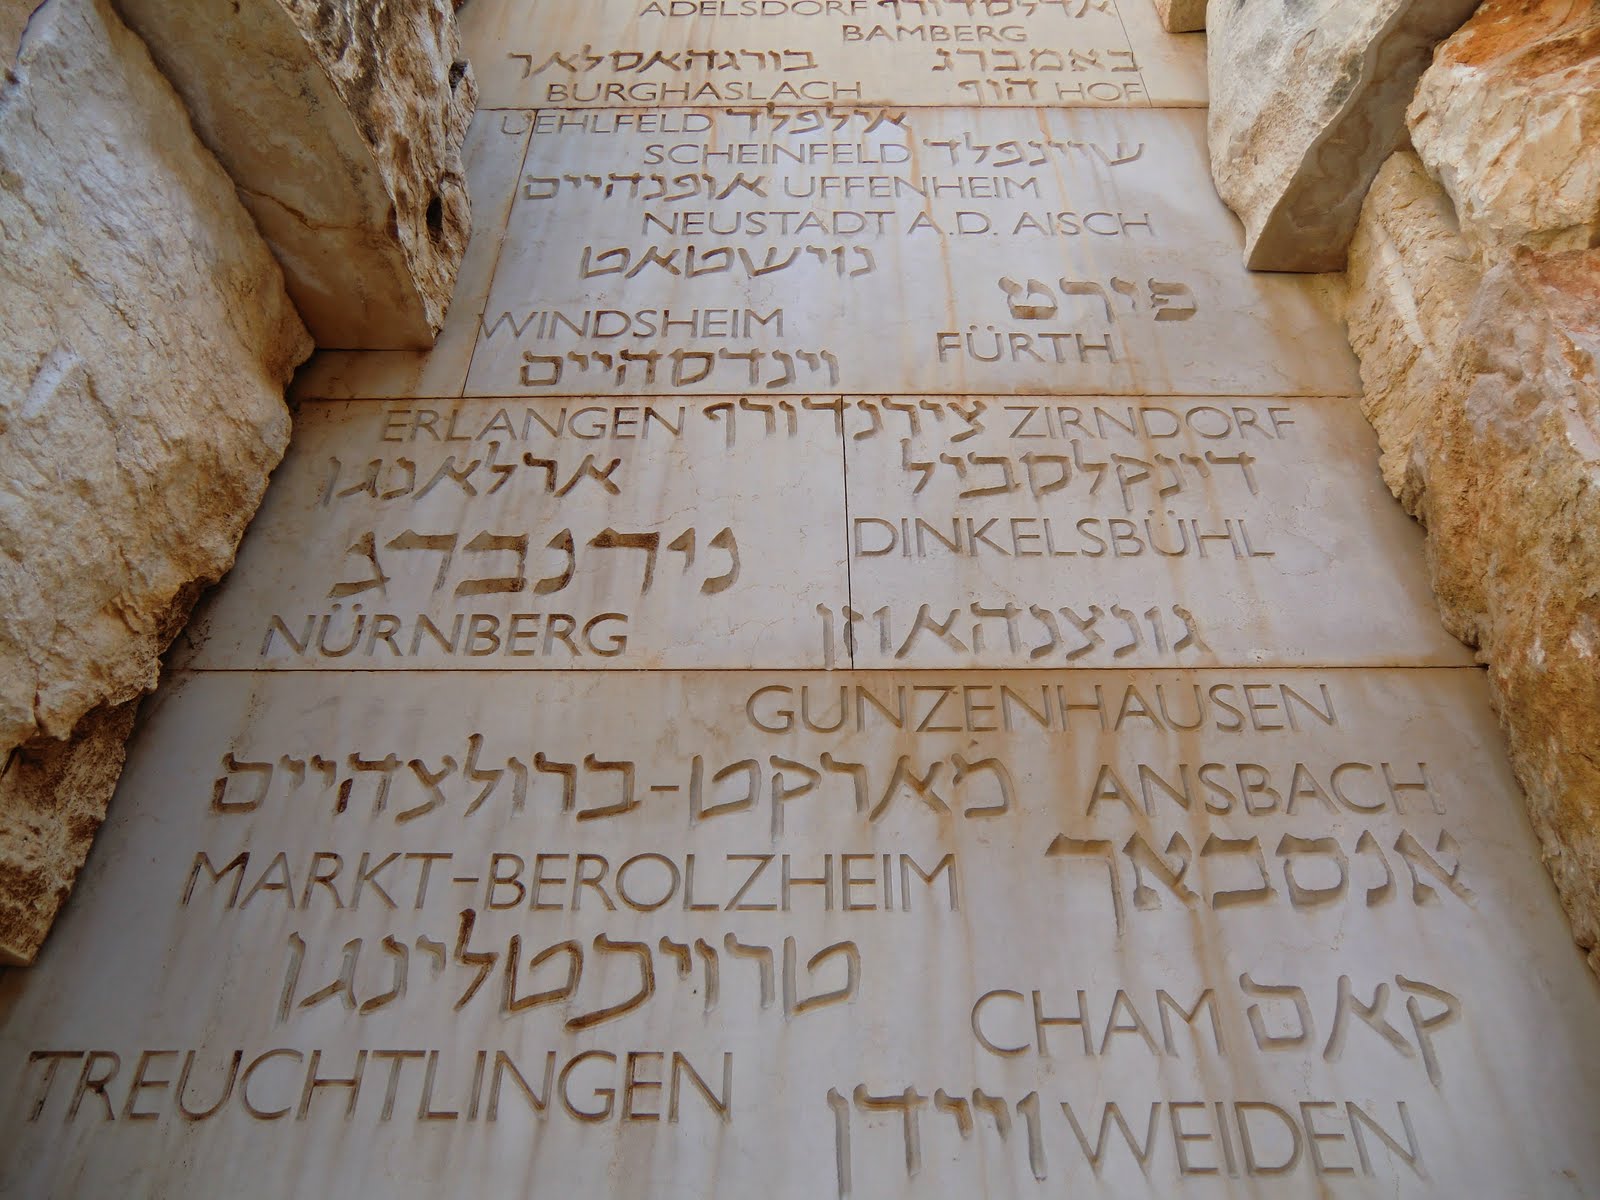 ADELSDORF אדלסדורף
BAMBERG
בורגהאסלאך באמברג
BURGHASLACH הוף HOF
UEHLFELD אילפלד
SCHEINFELD שיינפלד
אופנהיים UFFENHEIM
NEUSTADT A.D. AISCH
נוישטאט
פירט
WINDSHEIM
FÜRTH
וינדסהיים
ERLANGEN צירנדורף ZIRNDORF
ארלאנגן דינקלסביל
נירנברג DINKELSBÜHL
NÜRNBERG גונצנהאוזן
GUNZENHAUSEN
מארקט-ברולצהיים ANSBACH
MARKT-BEROLZHEIM אנסבאך
טרויכטלינגן
CHAM קאם
TREUCHTLINGEN
ויידן WEIDEN